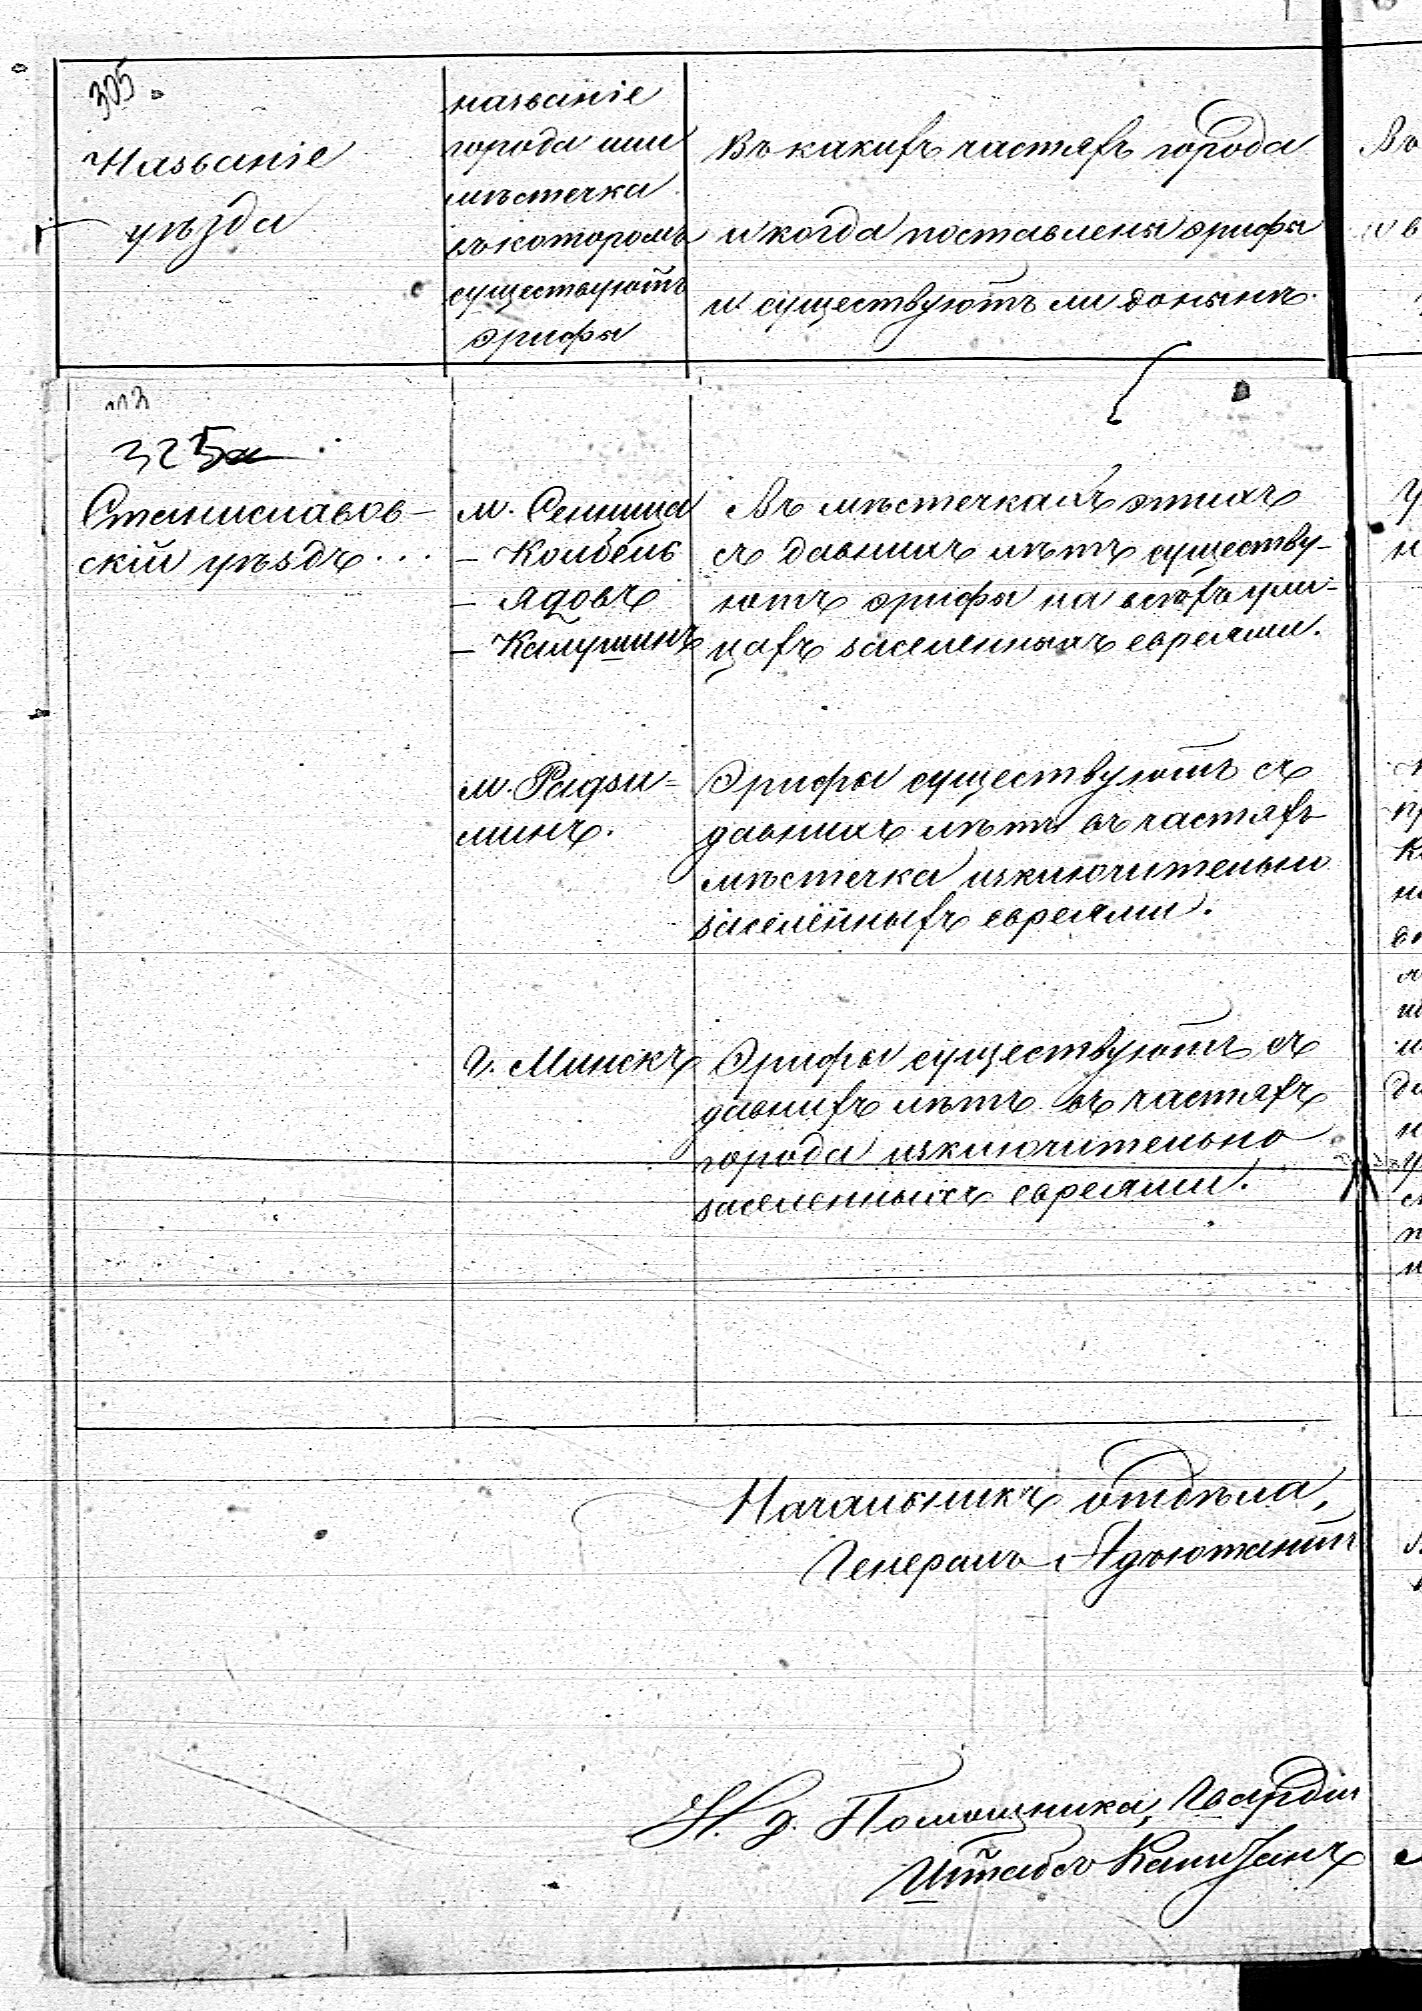 305
Названіе
уѣзда
названіе
города или
мѣстечка
въ которомъ
существуютъ
эрифы
Въ какихъ частяхъ города
и когда поставлены эрифы
и существуютъ ли донынѣ.
325
Станиславов-
скій уѣздъ...
м. Сенница
– Колбель
– Ядовъ
– Калушинъ
Въ мѣстечкахъ этихъ
съ давнихъ лѣтъ существу-
ютъ эрифы на всѣхъ ули-
цахъ заселенныхъ евреями.
м. Радзи-
минъ.
Эрифы существуютъ съ
давнихъ лѣтъ въ частяхъ
мѣстечка изключительно
заселённыхъ евреями.
г. Минскъ
Эрифы существуютъ съ
давнихъ лѣтъ въ частяхъ
города изключительно
заселенныхъ евреями.
Начальникъ отдѣла,
Генералъ Адъютантъ
И. д. Помощника, Гвардіи
Штабсъ Капитанъ